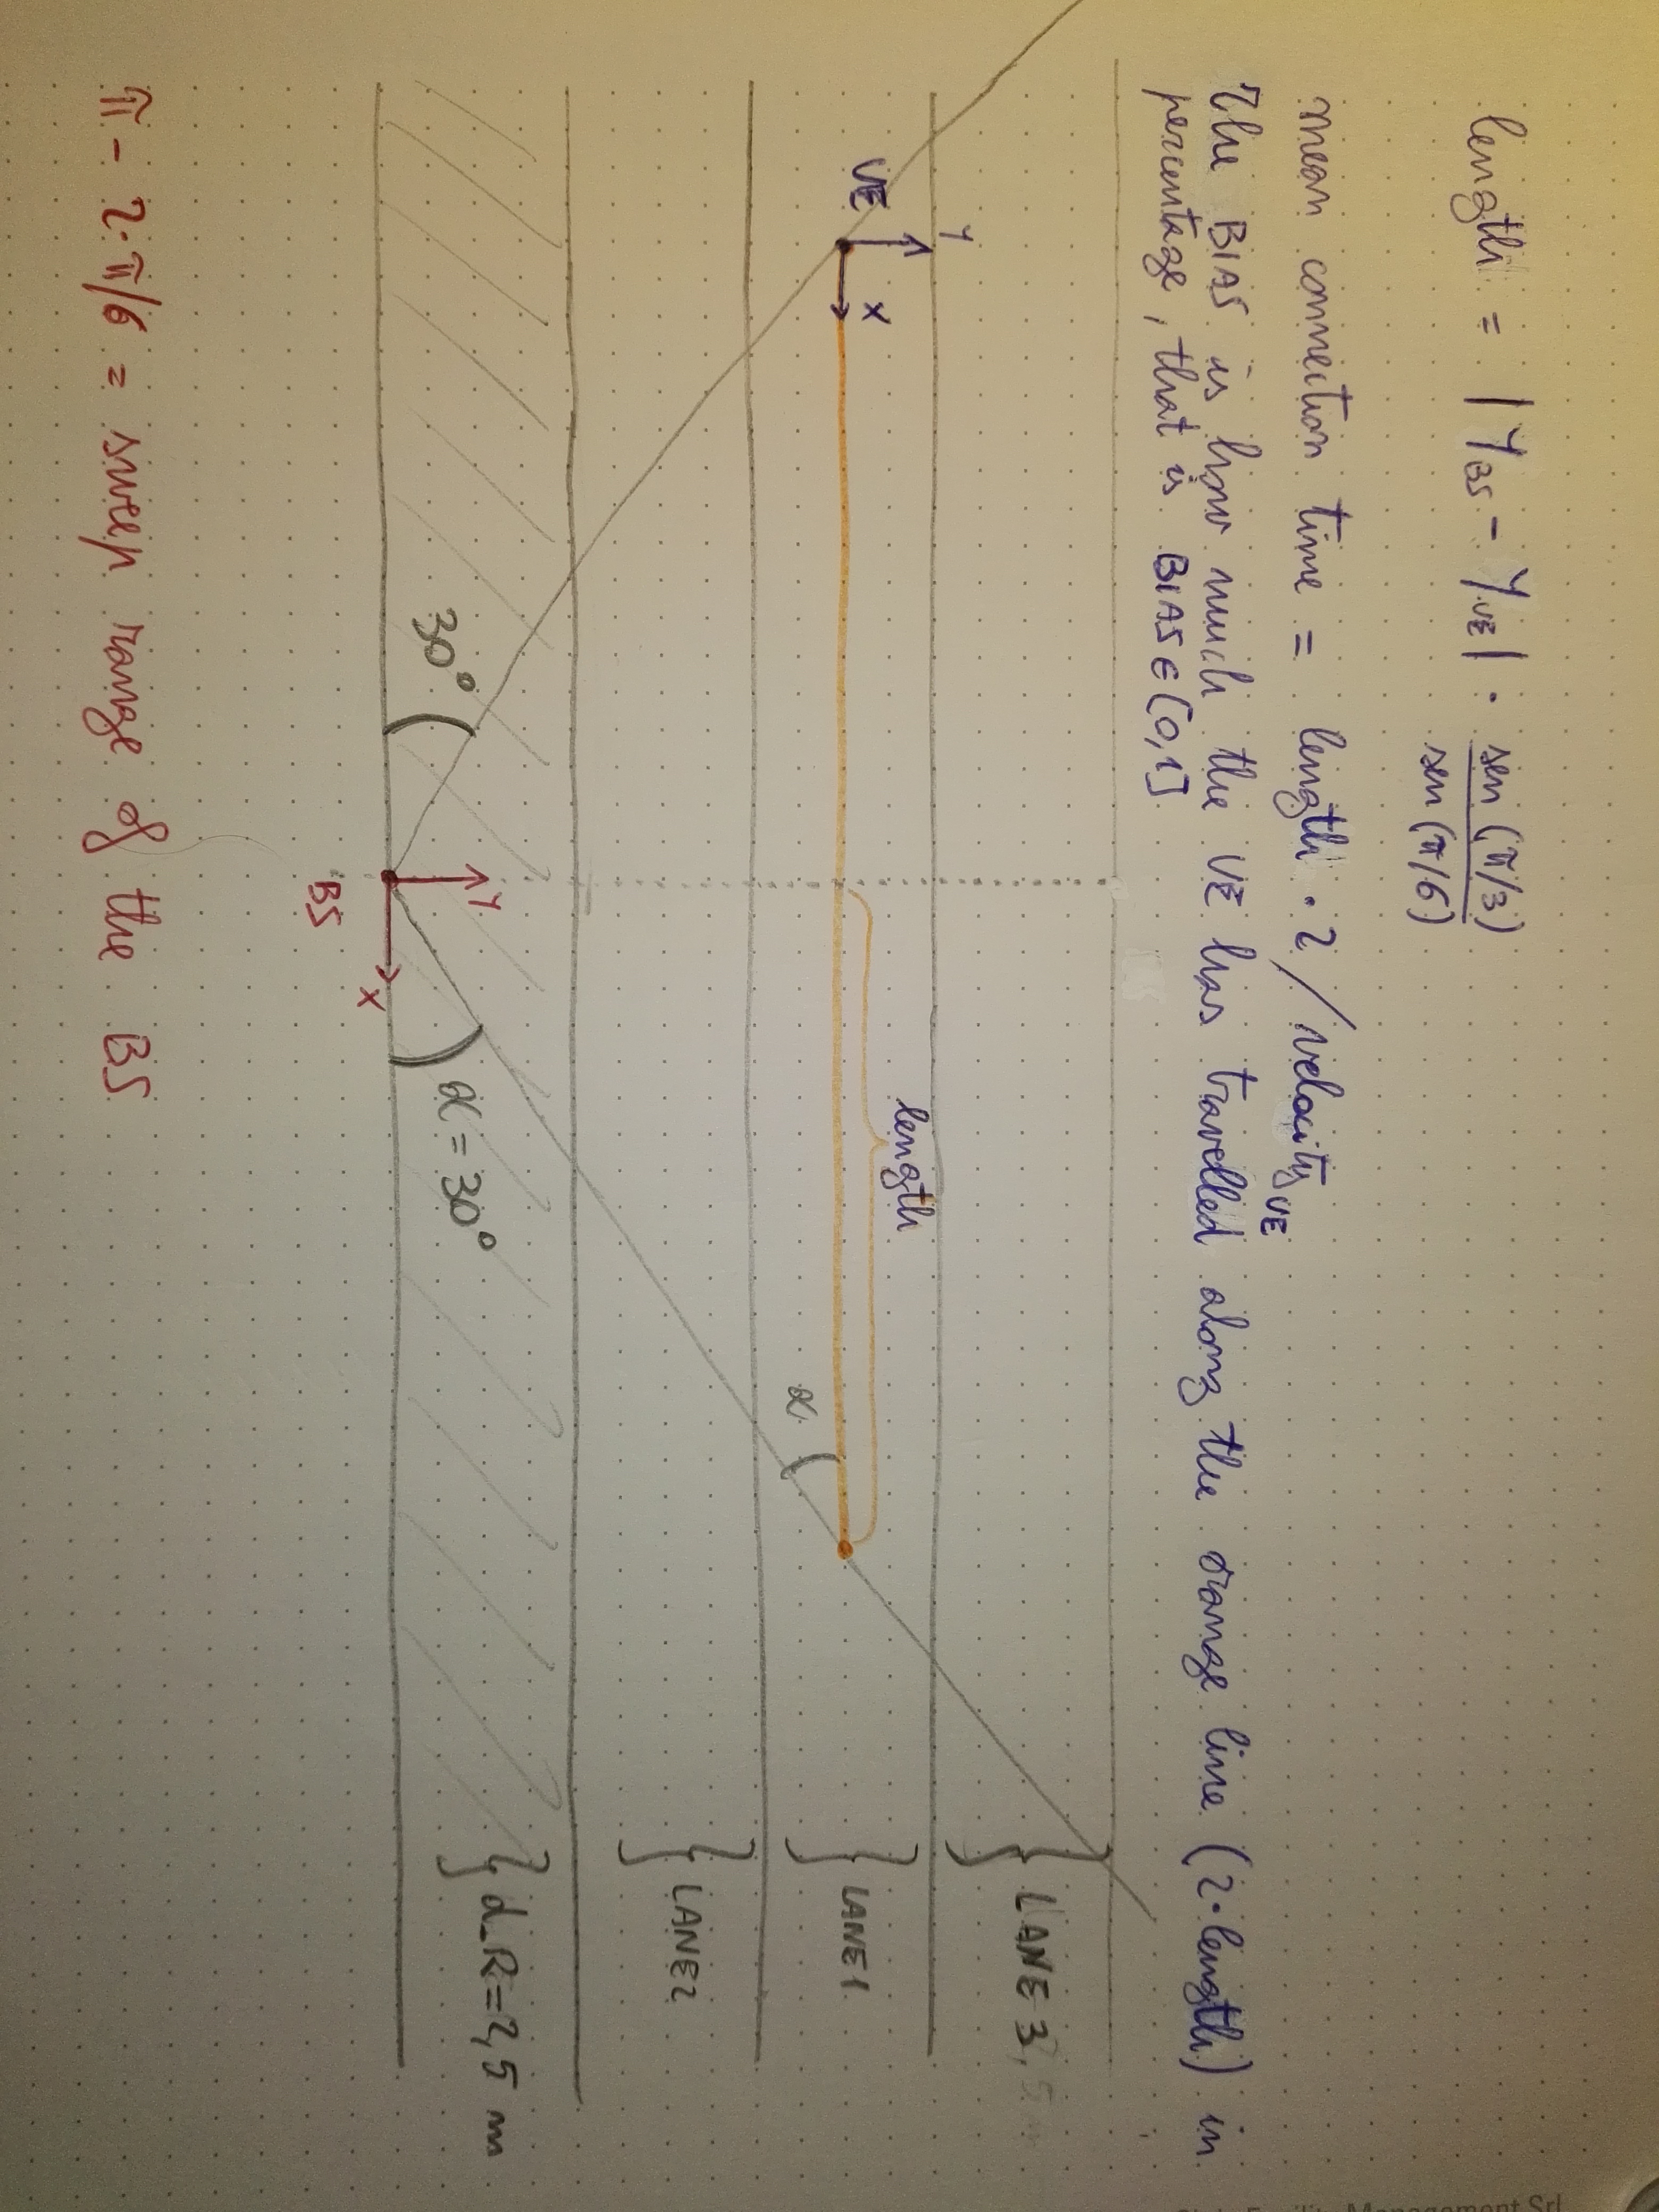 length = |Y_BS - Y_VE| · sen (π/3)
sen (π/6)
mean connection time = length · 2 / velocity_VE
The BIAS is how much the VE has travelled along the orange line (2·length) in
percentage, that is BIAS ∈ [0,1]
LANE 3
Y
VE
X
length
LANE 1
α
LANE 2
d_R = 2,5 m
30°
Y
α = 30°
X
BS
π - 2·π/6 = sweep range of the BS